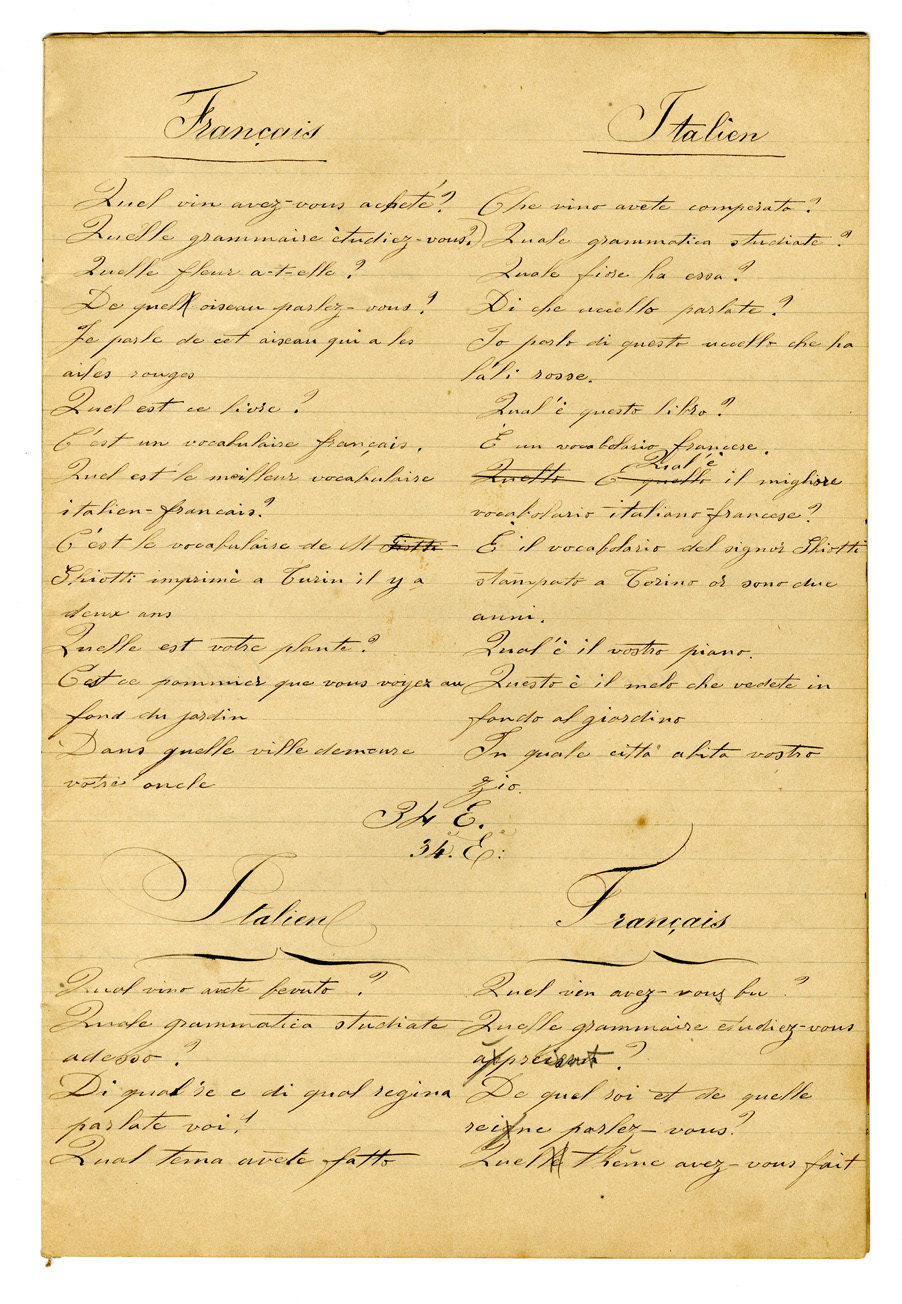 Français
Quel vin avez-vous acheté?
Quelle grammaire ètudiez-vous?)
Quelle fleur a-t-elle?
De quel oiseau parlez-vous?
Je parle de cet oiseau qui a les
ailes rouges
Quel est ce livre?
C'est un vocabulaire français.
Quel est le meilleur vocabulaire
italien-francais?
C'est le vocabulaire de M
Ghiotti imprimè a Turin il y a
deux ans
Quelle est votre plante?
C'est ce pommier que vous voyez au
fond du jardin
Dans quelle ville demeure
votre oncle
Italien
Che vino avete comperato?
Quale grammatica studiate?
Quale fiore ha essa?
Di che uccello parlate?
Io parlo di questo uccello che ha
l'ali rosse.
Qual'è questo libro?
È un vocabolario francese.
Quello E quello Qual'è il migliore
vocabolario italiano-francese?
È il vocabolario del signor Ghiotti
stampato a Torino or sono due
anni.
Qual'è il vostro piano.
Questo è il melo che vedete in
fondo al giardino
In quale città abita vostro
zio.
34 E.
34.e E:
Italien
Qual vino avete bevuto?
Quale grammatica studiate
adesso?
Di qual re e di qual regina
parlate voi?
Qual tema avete fatto
Français
Quel vin avez-vous bu?
Quelle grammaire etudiez-vous
?
De quel roi et de quelle
reine parlez-vous?
Quel thême avez-vous fait